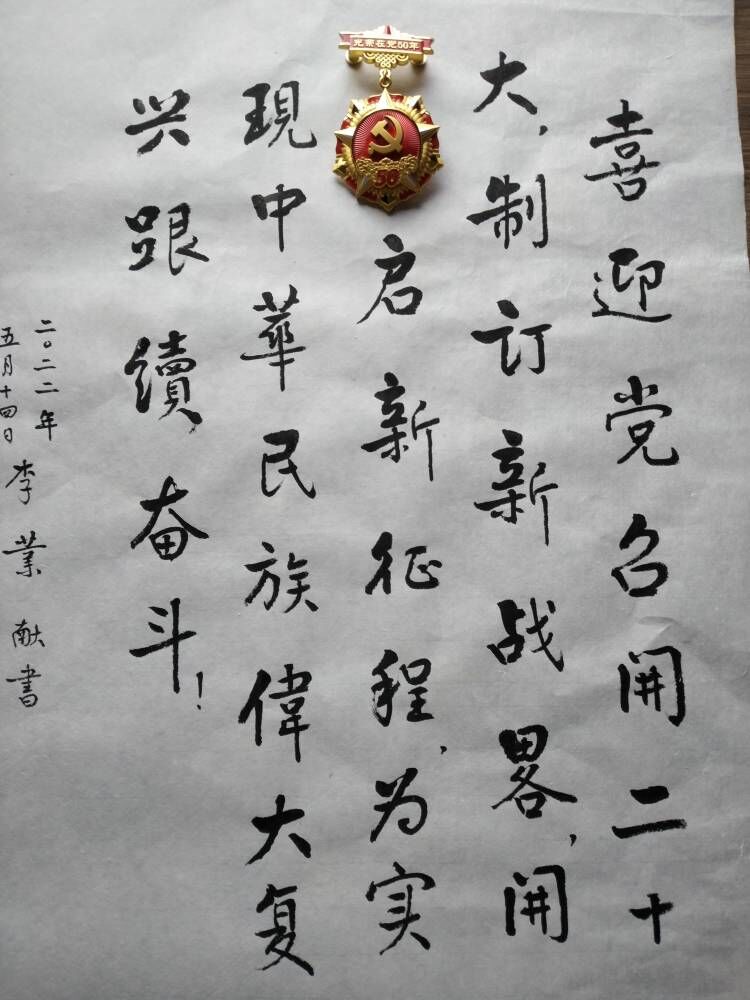 光荣在党50年
50
喜迎党召開二十
大，制订新战畧，開
启新征程，为实
現中華民族偉大复
兴跟續奋斗！
二〇二二年
五月十四日
李業献書